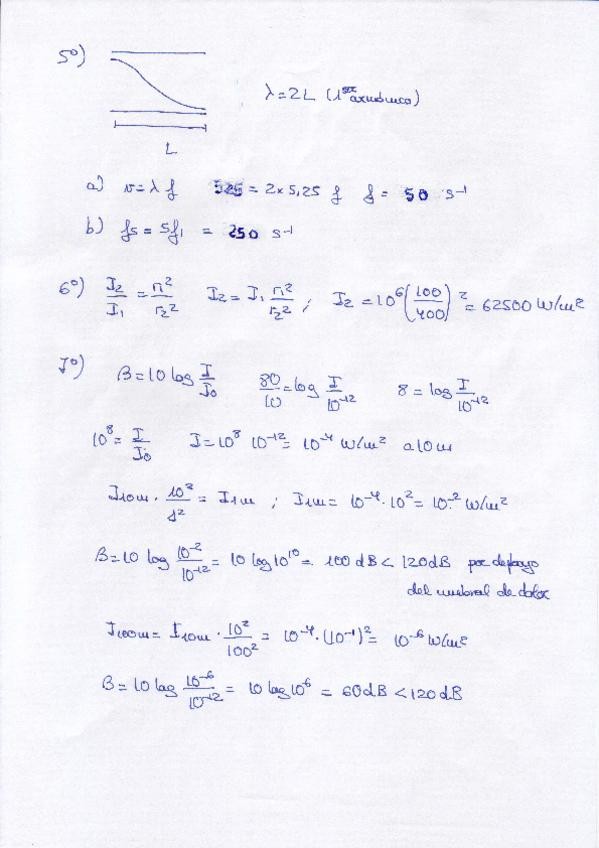 5º)
λ = 2L (1er armónico)
L
a) v = λ f 525 = 2 x 5,25 f f = 50 s⁻¹
b) f5 = 5f₁ = 250 s⁻¹
6º) I₂/I₁ = r₁²/r₂² I₂ = I₁ r₁²/r₂² ; I₂ = 10⁶ (100/400)² = 62500 W/m²
7º) B = 10 log I/I₀ 80/10 = log I/10⁻¹² 8 = log I/10⁻¹²
10⁸ = I/I₀ I = 10⁸ 10⁻¹² = 10⁻⁴ W/m² a 10 m
I10m · 10²/1² = I1m ; I1m = 10⁻⁴ · 10² = 10⁻² W/m²
B = 10 log 10⁻²/10⁻¹² = 10 log 10¹⁰ = 100 dB < 120 dB por debajo
del umbral de dolor
I100m = I10m · 10²/100² = 10⁻⁴ · (10⁻¹)² = 10⁻⁶ W/m²
B = 10 log 10⁻⁶/10⁻¹² = 10 log 10⁶ = 60 dB < 120 dB